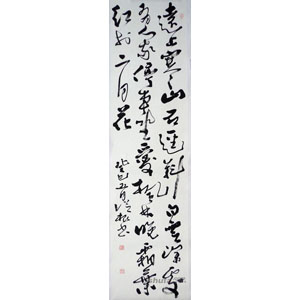 遠上寒山石逕斜白雲深處
有人家停車坐愛楓林晚霜葉
紅於二月花
癸巳五月書